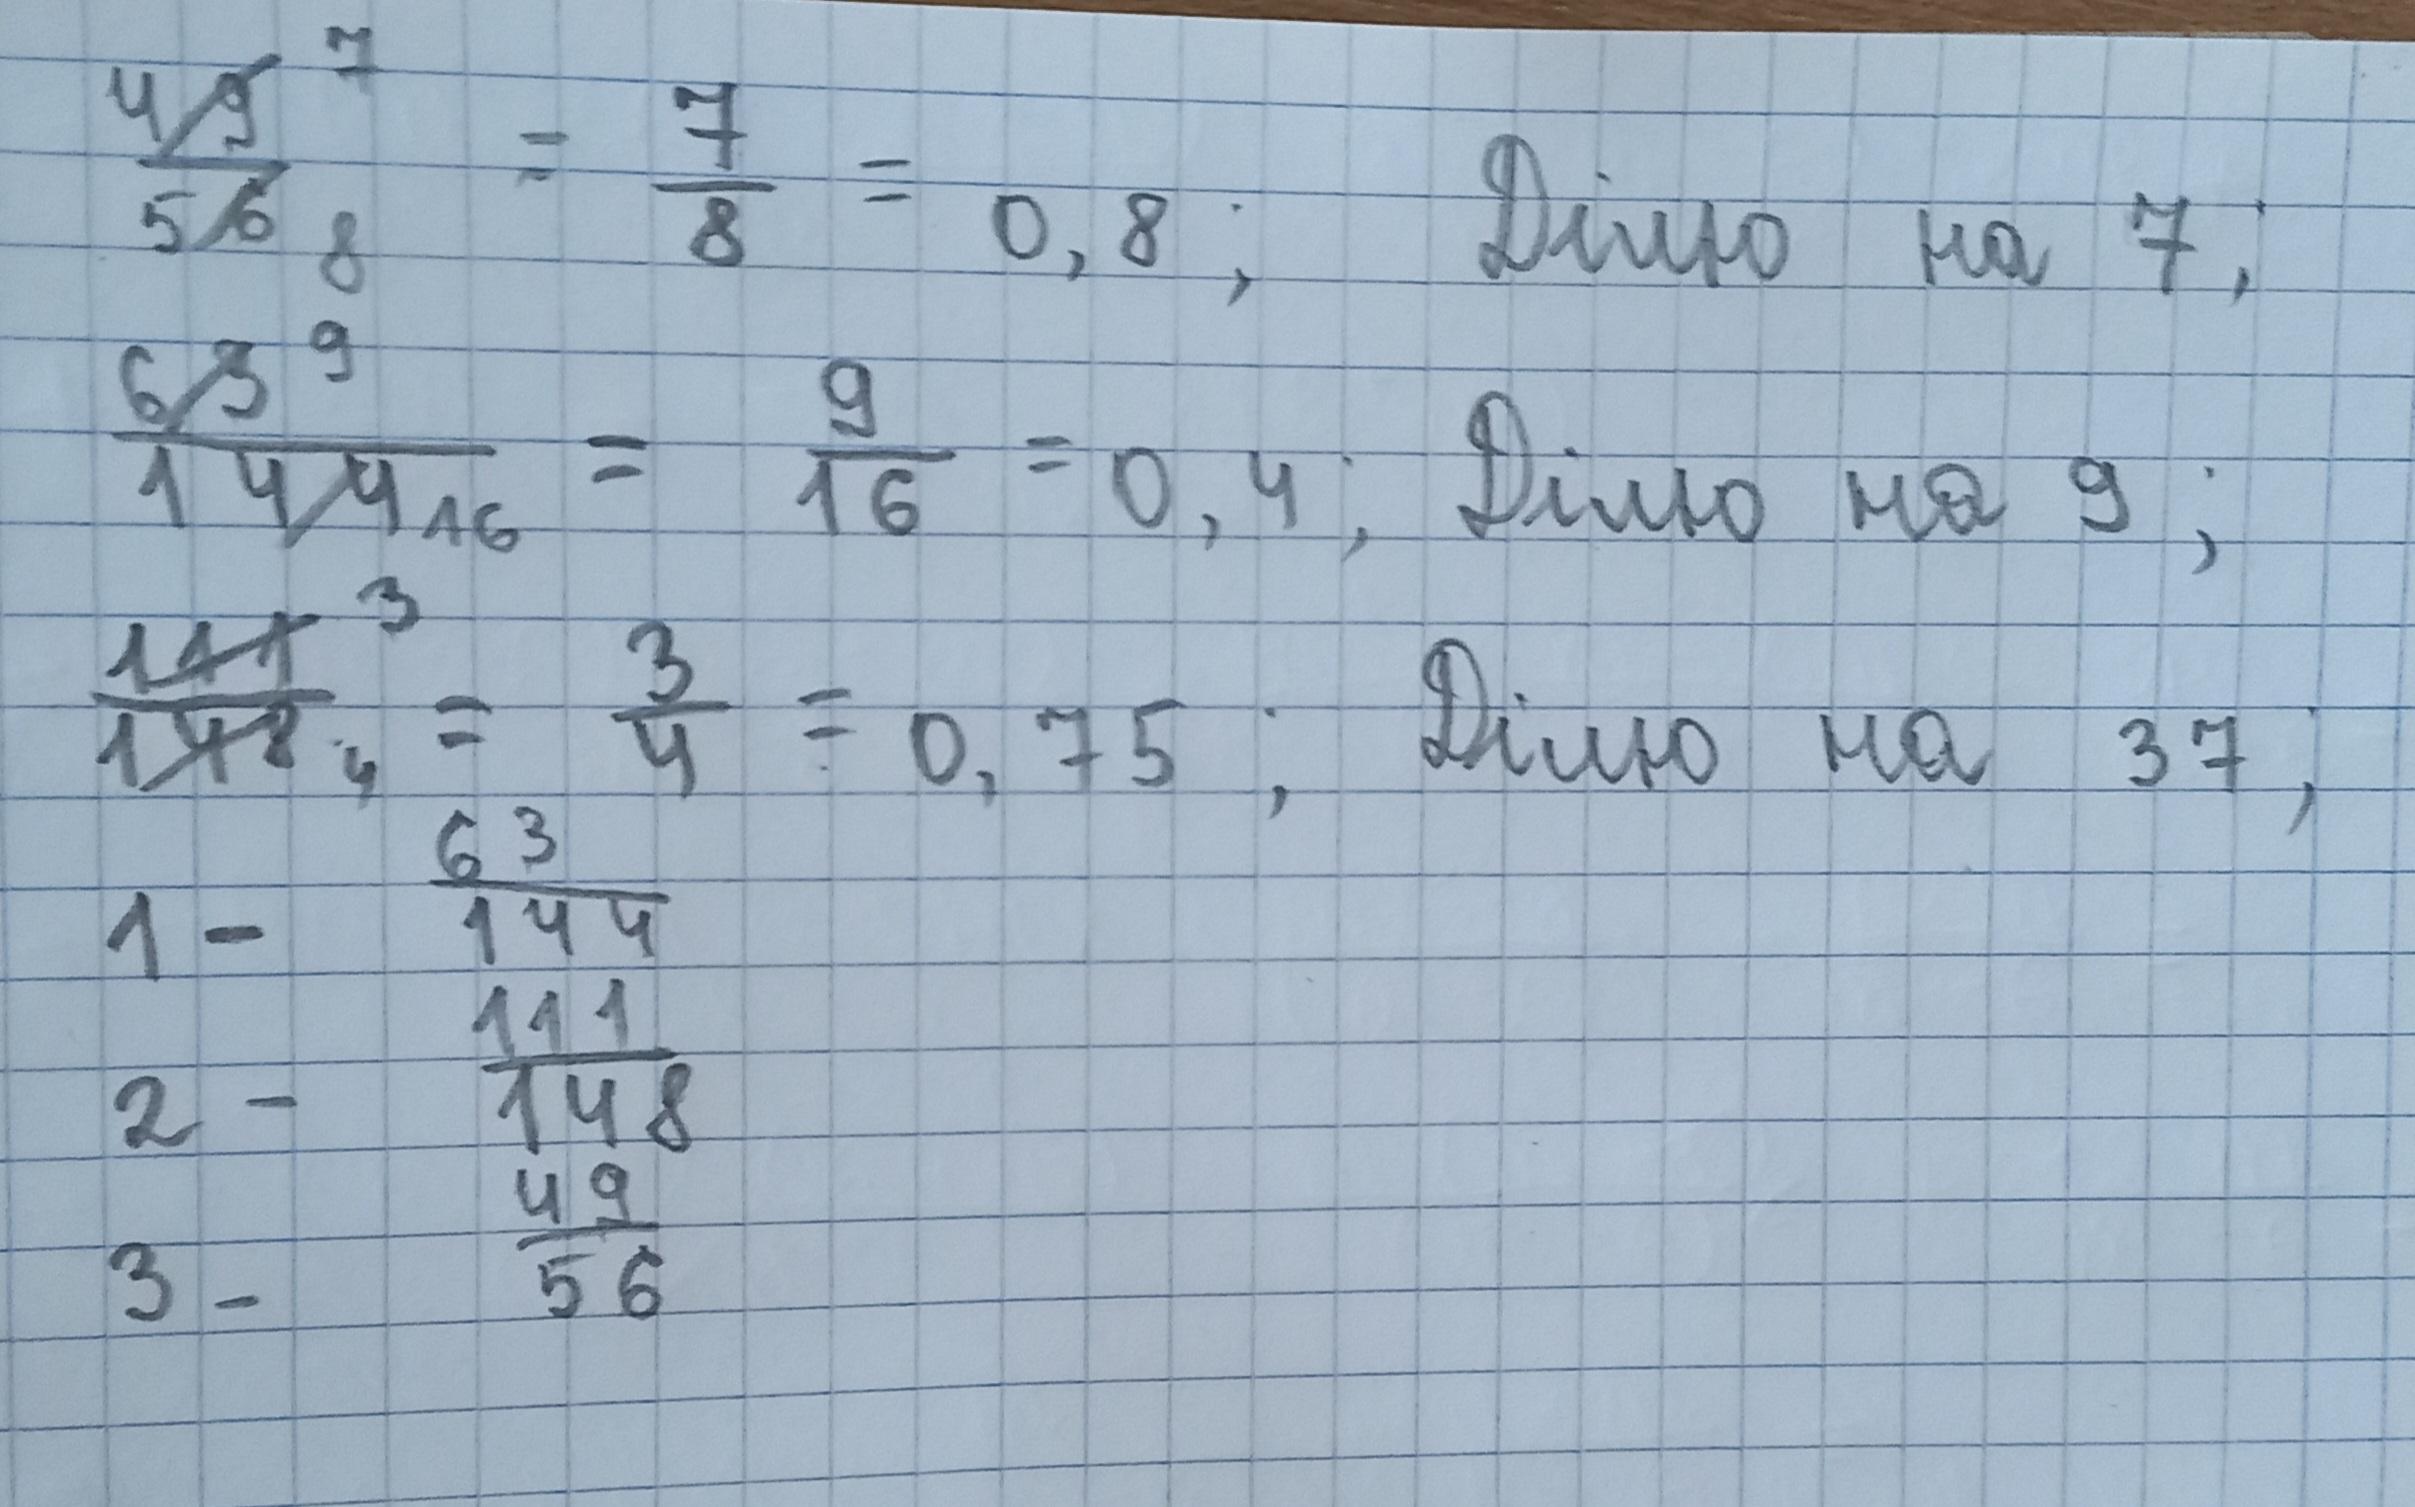 49 7 / 56 8 = 7/8 = 0,8; Ділю на 7;
63 9 / 144 16 = 9/16 = 0,4; Ділю на 9;
111 3 / 148 4 = 3/4 = 0,75; Ділю на 37;
1 - 63/144
2 - 111/148
3 - 49/56